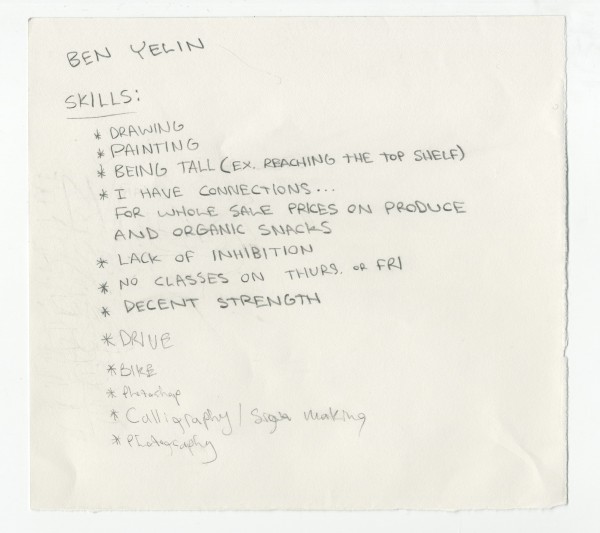 BEN YELIN
SKILLS:
* DRAWING
* PAINTING
* BEING TALL (EX. REACHING THE TOP SHELF)
* I HAVE CONNECTIONS...
FOR WHOLE SALE PRICES ON PRODUCE
AND ORGANIC SNACKS
* LACK OF INHIBITION
* NO CLASSES ON THURS. OR FRI
* DECENT STRENGTH
* DRIVE
* BIKE
* Photoshop
* Calligraphy / Sign making
* Photography